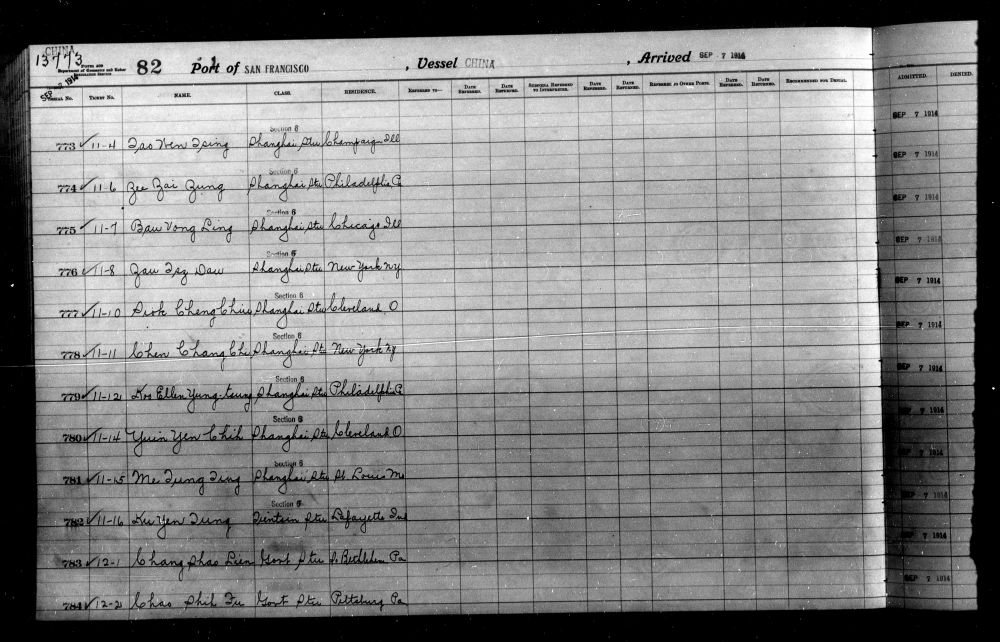 CHINA
13773
Form 500
Department of Commerce and Labor
IMMIGRATION SERVICE
SEP 7 1914
82 Port of SAN FRANCISCO, Vessel CHINA, Arrived SEP 7 1914
SERIAL NO. TICKET NO. NAME. CLASS. RESIDENCE. REFERRED TO— DATE REFERRED. DATE RETURNED. SUBPŒNA REFERRED TO INTERPRETER. DATE REFERRED. DATE RETURNED. REFERRED TO OTHER PORTS. DATE REFERRED. DATE RETURNED. RECOMMENDED FOR DENIAL. ADMITTED. DENIED.
SEP 7 1914
Section 6
773 ✓ 11-4 Tao Wen Tsing Shanghai, Stu Champaign Ill SEP 7 1914
Section 6
774 ✓ 11-6 Zee Zai Zung Shanghai Stu Philadelphia P SEP 7 1914
Section 6
775 ✓ 11-7 Bau Vong Ling Shanghai Stu Chicago Ill SEP 7 1914
Section 6
776 ✓ 11-8 Zau Tsz Dau Shanghai Stu New York NY SEP 7 1914
Section 6
777 ✓ 11-10 Siok Cheng Chiu Shanghai Stu Cleveland O SEP 7 1914
Section 6
778 ✓ 11-11 Chen Chang Chi Shanghai St New York NY SEP 7 1914
Section 6
779 ✓ 11-12 Koo Ellen Yung-tsung Shanghai Stu Philadelphia P SEP 7 1914
Section 6
780 ✓ 11-14 Yuin Yen Chih Shanghai Stu Cleveland O SEP 7 1914
Section 6
781 ✓ 11-15 Me Tung Ting Shanghai Stu St Louis Mo SEP 7 1914
Section 6
782 ✓ 11-16 Ku Yen Tung Tientsin Stu Lafayette Ind SEP 7 1914
783 ✓ 12-1 Chang Shao Lien Govt Stu So Bethlehem Pa SEP 7 1914
784 ✓ 12-2 Chao Shih Tu Govt Stu Pittsburg Pa